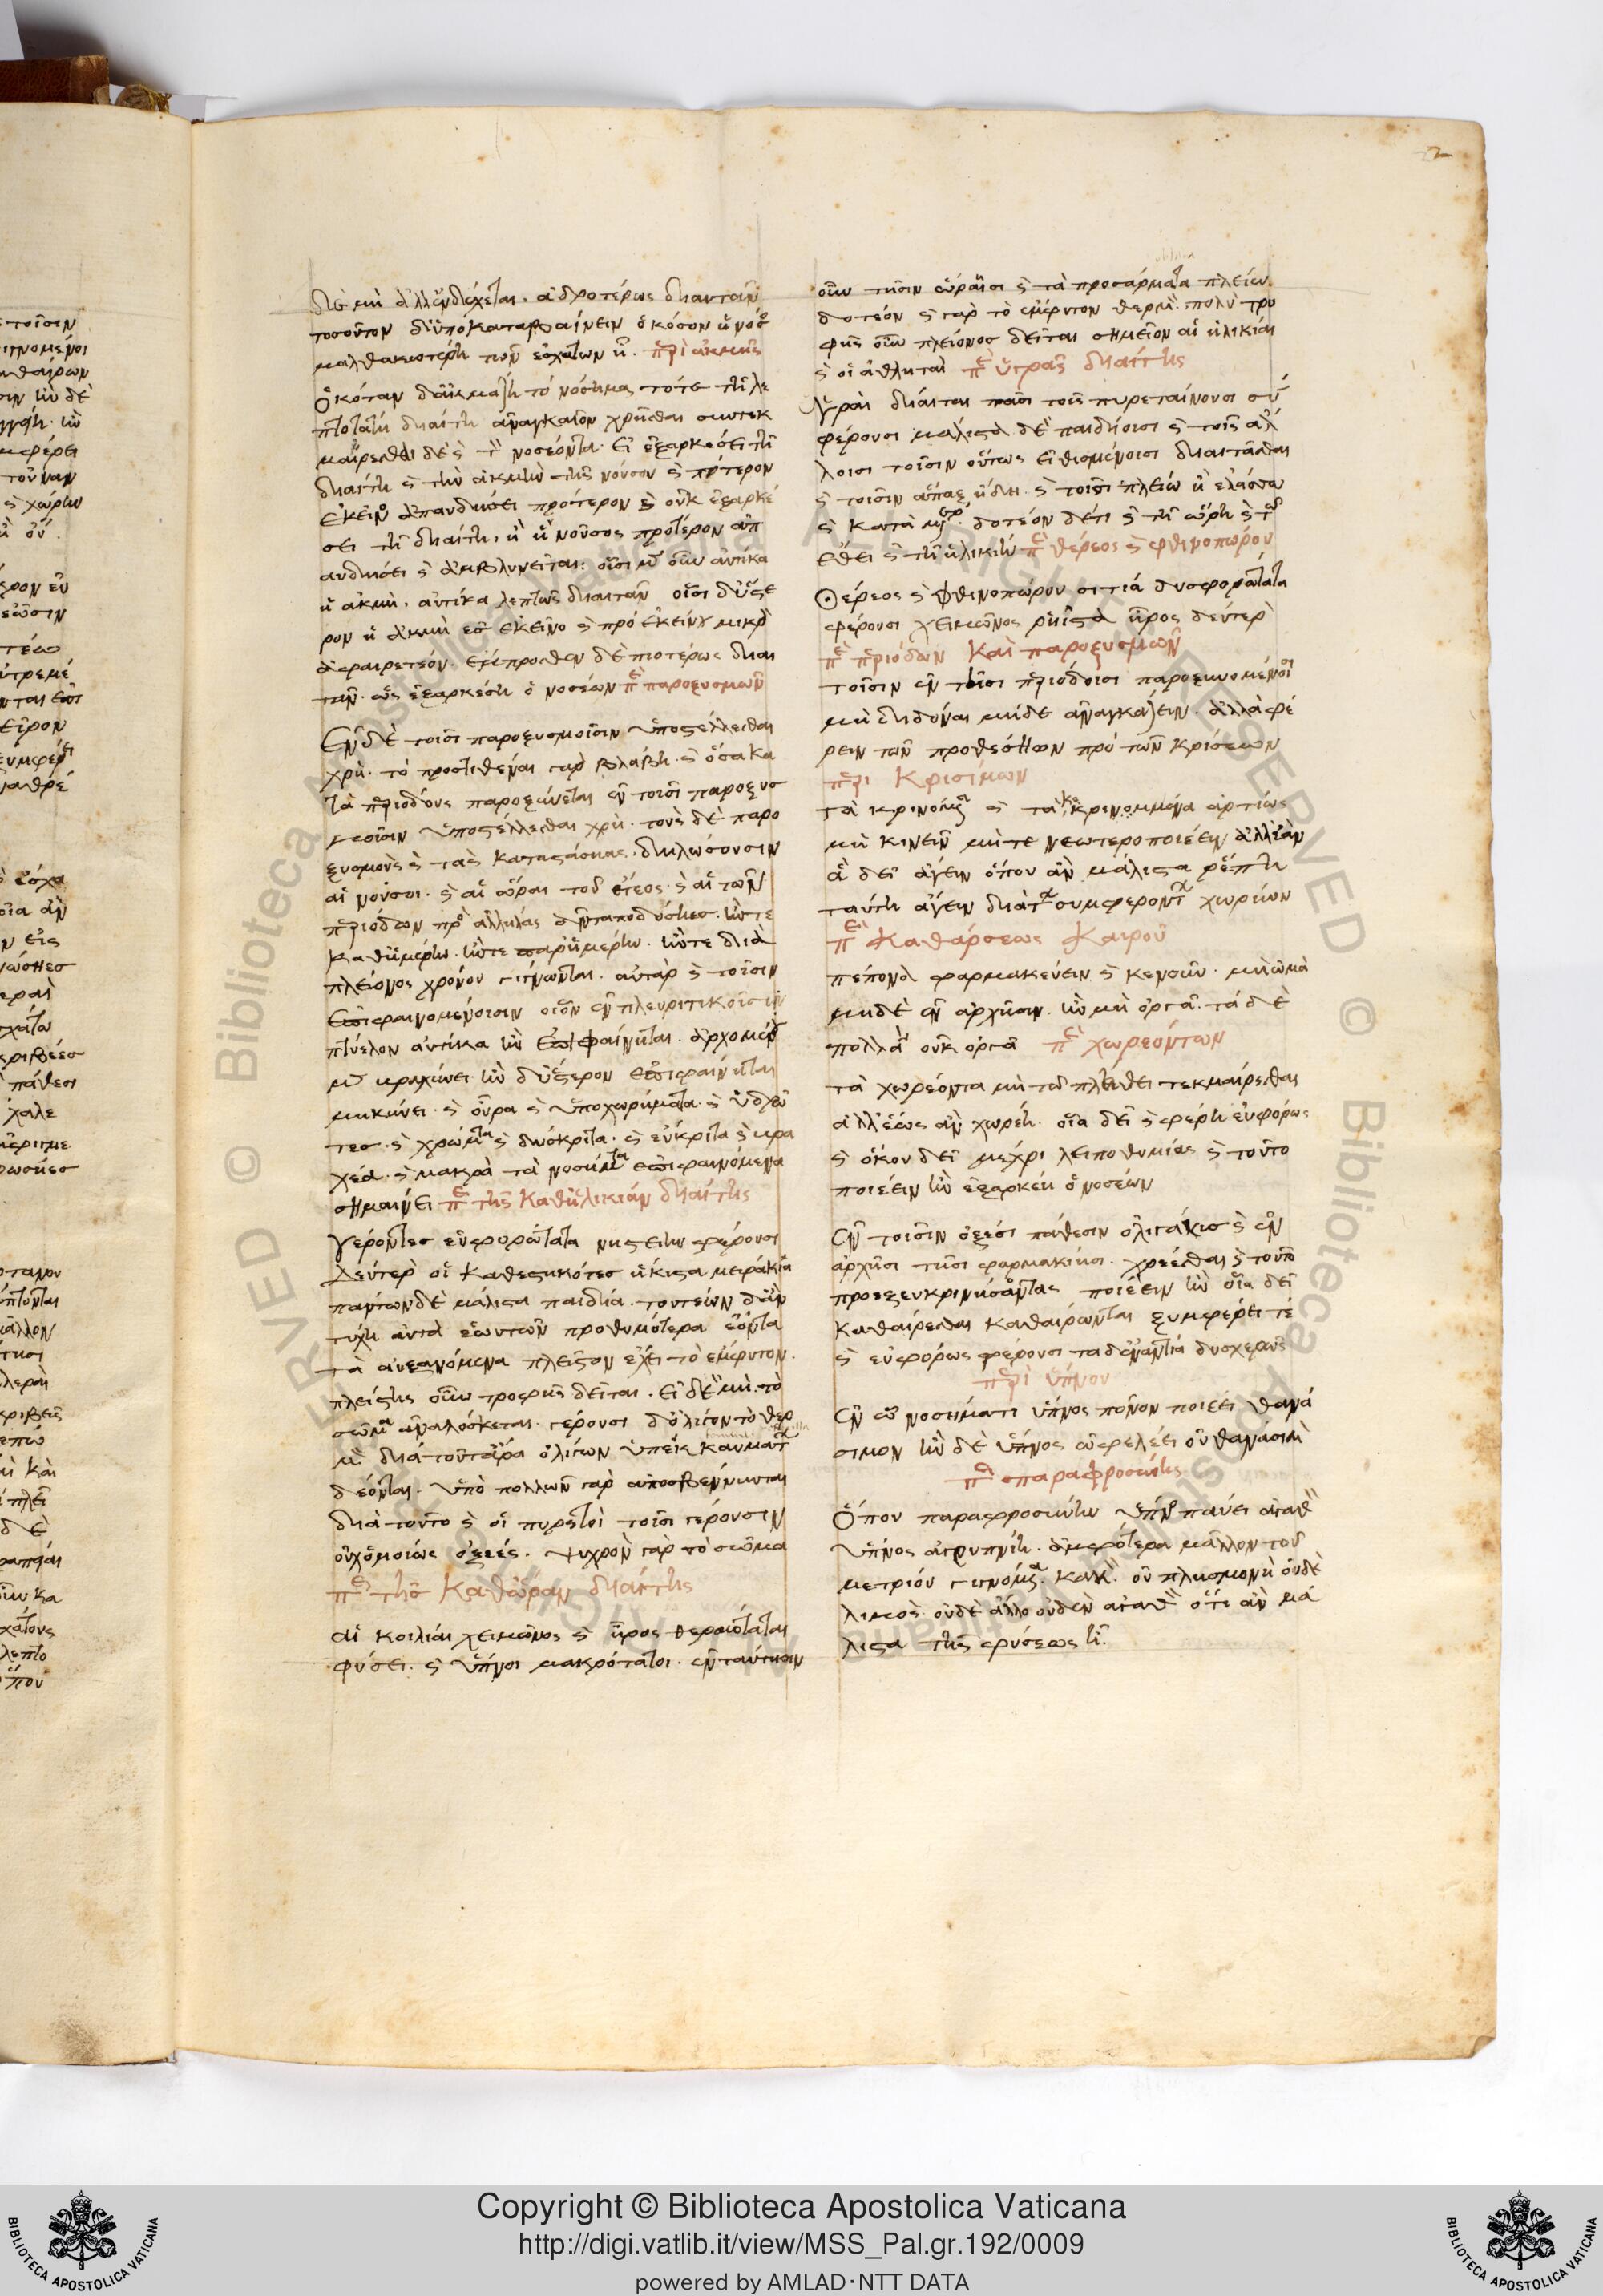 2
δὲ μὴ ἀλλ' ἐνδέχεται. ἁδροτέρως διαιτᾶν
τοσοῦτον δ' ὑποκαταβαίνειν ὁκόσον ἡ νοῦσ
μαλθακωτέρη τῶν ἐσχάτων ᾖ. περὶ ἀκμῆς
Ὁκόταν δ' ἀκμάζῃ τὸ νόσημα τότε τῇ λε
πτοτάτῃ διαίτῃ ἀναγκαῖον χρῆσθαι συντεκ
μαίρεσθαι δὲ ϗ τὸν νοσέοντα. εἰ ἐξαρκέσει τῇ
διαίτῃ ϗ τὴν ἀκμὴν τῆς νούσου ϗ πότερον
ἐκεῖνος ἀπαυδήσει πρότερον ϗ οὐκ ἐξαρκέ
σει τῇ διαίτῃ. ἢ ἡ νοῦσος πρότερον ἀπ
αυδήσει ϗ ἀμβλυνεῖται: οἷσι μὲν οὖν αὐτίκα
ἡ ἀκμὴ. αὐτίκα λεπτῶς διαιτᾶν οἷσι δ' ὕστε
ρον ἡ ἀκμὴ ἐς ἐκεῖνο ϗ πρὸ ἐκείνου μικρὸν
ἀφαιρετέον. ἔμπροσθεν δὲ πιοτέρως διαι
τᾶν. ὡς ἐξαρκέσῃ ὁ νοσέων περὶ παροξυσμῶν
Ἐν δὲ τοῖσι παροξυσμοῖσιν ὑποστέλλεσθαι
χρὴ. τὸ προστιθέναι γὰρ βλάβη. ϗ ὅσα κα
τὰ περιόδους παροξύνεται ἐν τοῖσι παροξυσ
μοῖσιν ὑποστέλλεσθαι χρὴ. τοὺς δὲ παρο
ξυσμοὺς ϗ τὰς καταστάσιας. δηλώσουσιν
αἱ νοῦσοι. ϗ αἱ ὧραι τοῦ ἔτεος. ϗ αἱ τῶν
περιόδων πρὸς ἀλλήλας ἀνταποδόσιες. ἤν τε
καθ' ἡμέρην. ἤν τε παρ' ἡμέρην. ἤν τε διὰ
πλείονος χρόνου γίγνωνται. αὐτὰρ ϗ τοῖσιν
ἐπιφαινομένοισιν οἷον ἐν πλευριτικοῖσιν
πτύελον αὐτίκα ἢν ἐπιφαίνηται. ἀρχομένου
μὲν βραχύνει. ἢν δ' ὕστερον ἐπιφαίνηται
μηκύνει. ϗ οὖρα ϗ ὑποχωρήματα. ϗ ἱδρῶ
τες. ϗ χρώματα ϗ δύσκριτα. ϗ εὔκριτα ϗ βρα
χέα. ϗ μακρὰ τὰ νοσήματα ἐπιφαινόμενα
σημαίνει περὶ τῆς καθ' ἡλικίαν διαίτης
γέροντες εὐφορώτατα νηστείην φέρουσι
Δεύτερον οἱ καθεστηκότες ἥκιστα μειράκια
πάντων δὲ μάλιστα παιδία. τουτέων δ' ἂν
τύχῃ αὐτὰ ἑωυτῶν προθυμότερα ἐόντα
τὰ αὐξανόμενα πλεῖστον ἔχει τὸ ἔμφυτον.
πλείστης οὖν τροφῆς δεῖται. εἰ δὲ μὴ. τὸ
σῶμα ἀναλίσκεται. γέρουσι δ' ὀλίγον τὸ θερ
μόν. διὰ τοῦτ' ἄρα ὀλίγων ὑπεκκαυμάτων
δέονται. ὑπὸ πολλῶν γὰρ ἀποσβέννυνται
διὰ τοῦτο ϗ οἱ πυρετοὶ τοῖσι γέρουσιν
οὐχ ὁμοίως ὀξέες. ψυχρὸν γὰρ τὸ σῶμα
περὶ τῆς καθ' ὥραν διαίτης
αἱ κοιλίαι χειμῶνος ϗ ἦρος θερμόταται
φύσει. ϗ ὕπνοι μακρότατοι. ἐν ταύτῃσιν
οὖν τῇσιν ὥρῃσι ϗ τὰ προσάρματα πλείω
δοτέον ϗ γὰρ τὸ ἔμφυτον θερμὸν πολύ τρο
φῆς οὖν πλείονος δεῖται σημεῖον αἱ ἡλικίαι
ϗ οἱ ἀθληταὶ περὶ ὑγρᾶς διαίτης
Ὑγραὶ δίαιται πᾶσι τοῖς πυρεταίνουσι συμ
φέρουσι μάλιστα δὲ παιδίοισι ϗ τοῖς ἀλ
λοισι τοῖσιν οὕτως εἰθισμένοισι διαιτᾶσθαι
ϗ τοῖσιν ἅπαξ ἢ δὶς. ϗ τοῖσι πλείω ἢ ἐλάσσω
ϗ κατὰ μέρος. δοτέον δέ τι ϗ τῇ ὥρῃ ϗ τῷ
ἔθει ϗ τῇ ἡλικίῃ περὶ θέρεος ϗ φθινοπώρου
Θέρεος ϗ φθινοπώρου σιτία δυσφορώτατα
φέρουσι χειμῶνος ῥήϊστα ἦρος δεύτερον
περὶ περιόδων καὶ παροξυσμῶν
τοῖσιν ἐν τοῖσι περιόδοισι παροξυνομένοισι
μὴ διδόναι μηδὲ ἀναγκάζειν. ἀλλ' ἀφαι
ρεῖν τῶν προθεσίων πρὸ τῶν κρίσεων
περὶ κρισίμων
τὰ κρινόμενα ϗ τὰ κεκριμμένα ἀρτίως
μὴ κινεῖν μήτε νεωτεροποιέειν ἀλλ' ἐᾶν
ἃ δεῖ ἄγειν ὅπου ἂν μάλιστα ῥέπῃ
ταύτῃ ἄγειν διὰ τῶν συμφερόντων χωρίων
περὶ καθάρσεως καιροῦ
πέπονα φαρμακεύειν ϗ κενοῦν. μὴ ὠμὰ
μηδὲ ἐν ἀρχῇσιν. ἢν μὴ ὀργᾷ. τὰ δὲ
πολλὰ οὐκ ὀργᾷ περὶ χωρεόντων
τὰ χωρέοντα μὴ τῷ πλήθει τεκμαίρεσθαι
ἀλλ' ἕως ἂν χωρέῃ. οἷα δεῖ ϗ φέρῃ εὐφόρως
ϗ ὅκου δεῖ μέχρι λειποθυμίας ϗ τοῦτο
ποιέειν ἢν ἐξαρκέῃ ὁ νοσέων
Ἐν τοῖσιν ὀξέσι πάθεσιν ὀλιγάκις ϗ ἐν
ἀρχῇσι τῇσι φαρμακίῃσι. χρέεσθαι ϗ τοῦτο
προεξευκρινήσαντας ποιέειν ἢν οἷα δεῖ
καθαίρεσθαι καθαίρωνται ξυμφέρει τέ
ϗ εὐφόρως φέρουσι τὰ δ' ἐναντία δυσχερῶς
περὶ ὕπνου
Ἐν ᾧ νοσήματι ὕπνος πόνον ποιέει θανά
σιμον ἢν δὲ ὕπνος ὠφελέει οὐ θανάσιμον
περὶ παραφροσύνης
Ὅπου παραφροσύνην ὕπνος παύει ἀγαθὸν
ὕπνος ἀγρυπνίη. ἀμφότερα μᾶλλον τοῦ
μετρίου γιγνόμενα. κακόν. οὐ πλησμονὴ οὐδὲ
λιμὸς οὐδὲ ἄλλο οὐδὲν ἀγαθὸν ὅτι ἂν μᾶ
λιστα τῆς φύσεως ᾖ.
Copyright © Biblioteca Apostolica Vaticana
http://digi.vatlib.it/view/MSS_Pal.gr.192/0009
powered by AMLAD·NTT DATA